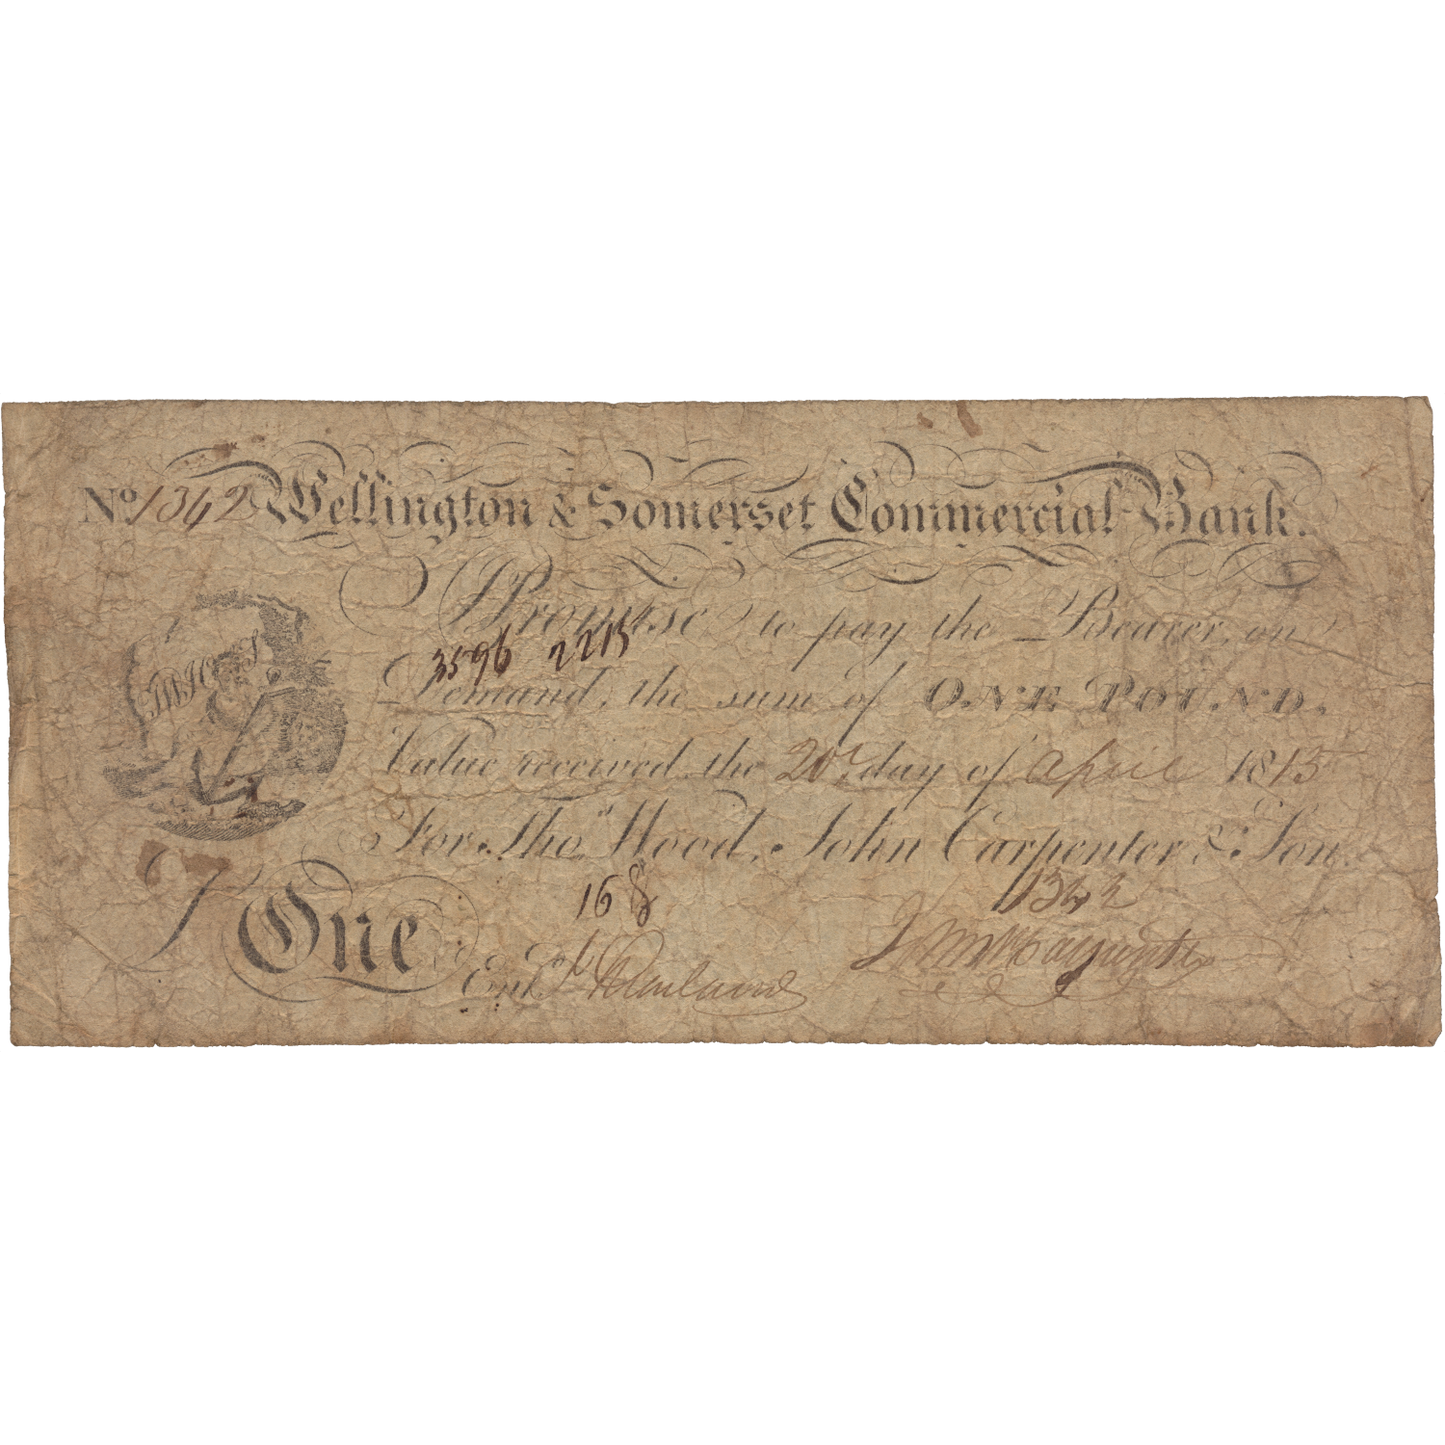 No 1362 Wellington & Somerset Commercial Bank.
I Promise to pay the Bearer, on
3596 2215
Demand, the sum of ONE POUND.
Value received the 20 day of April 1815
For Thos. Wood, John Carpenter & Son.
168
1362
One
Entd